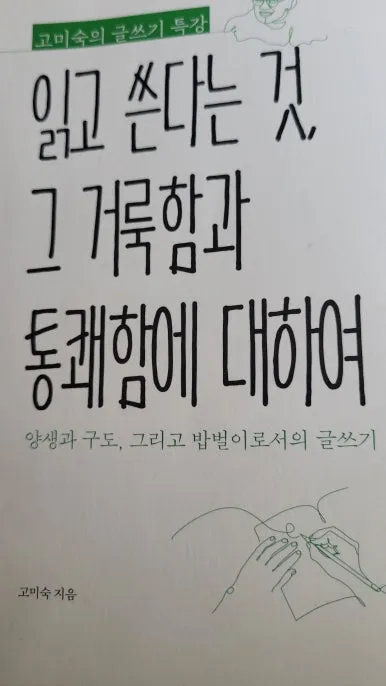 고미숙의 글쓰기 특강
읽고 쓴다는 것,
그 거룩함과
통쾌함에 대하여
양생과 구도, 그리고 밥벌이로서의 글쓰기
고미숙 지음